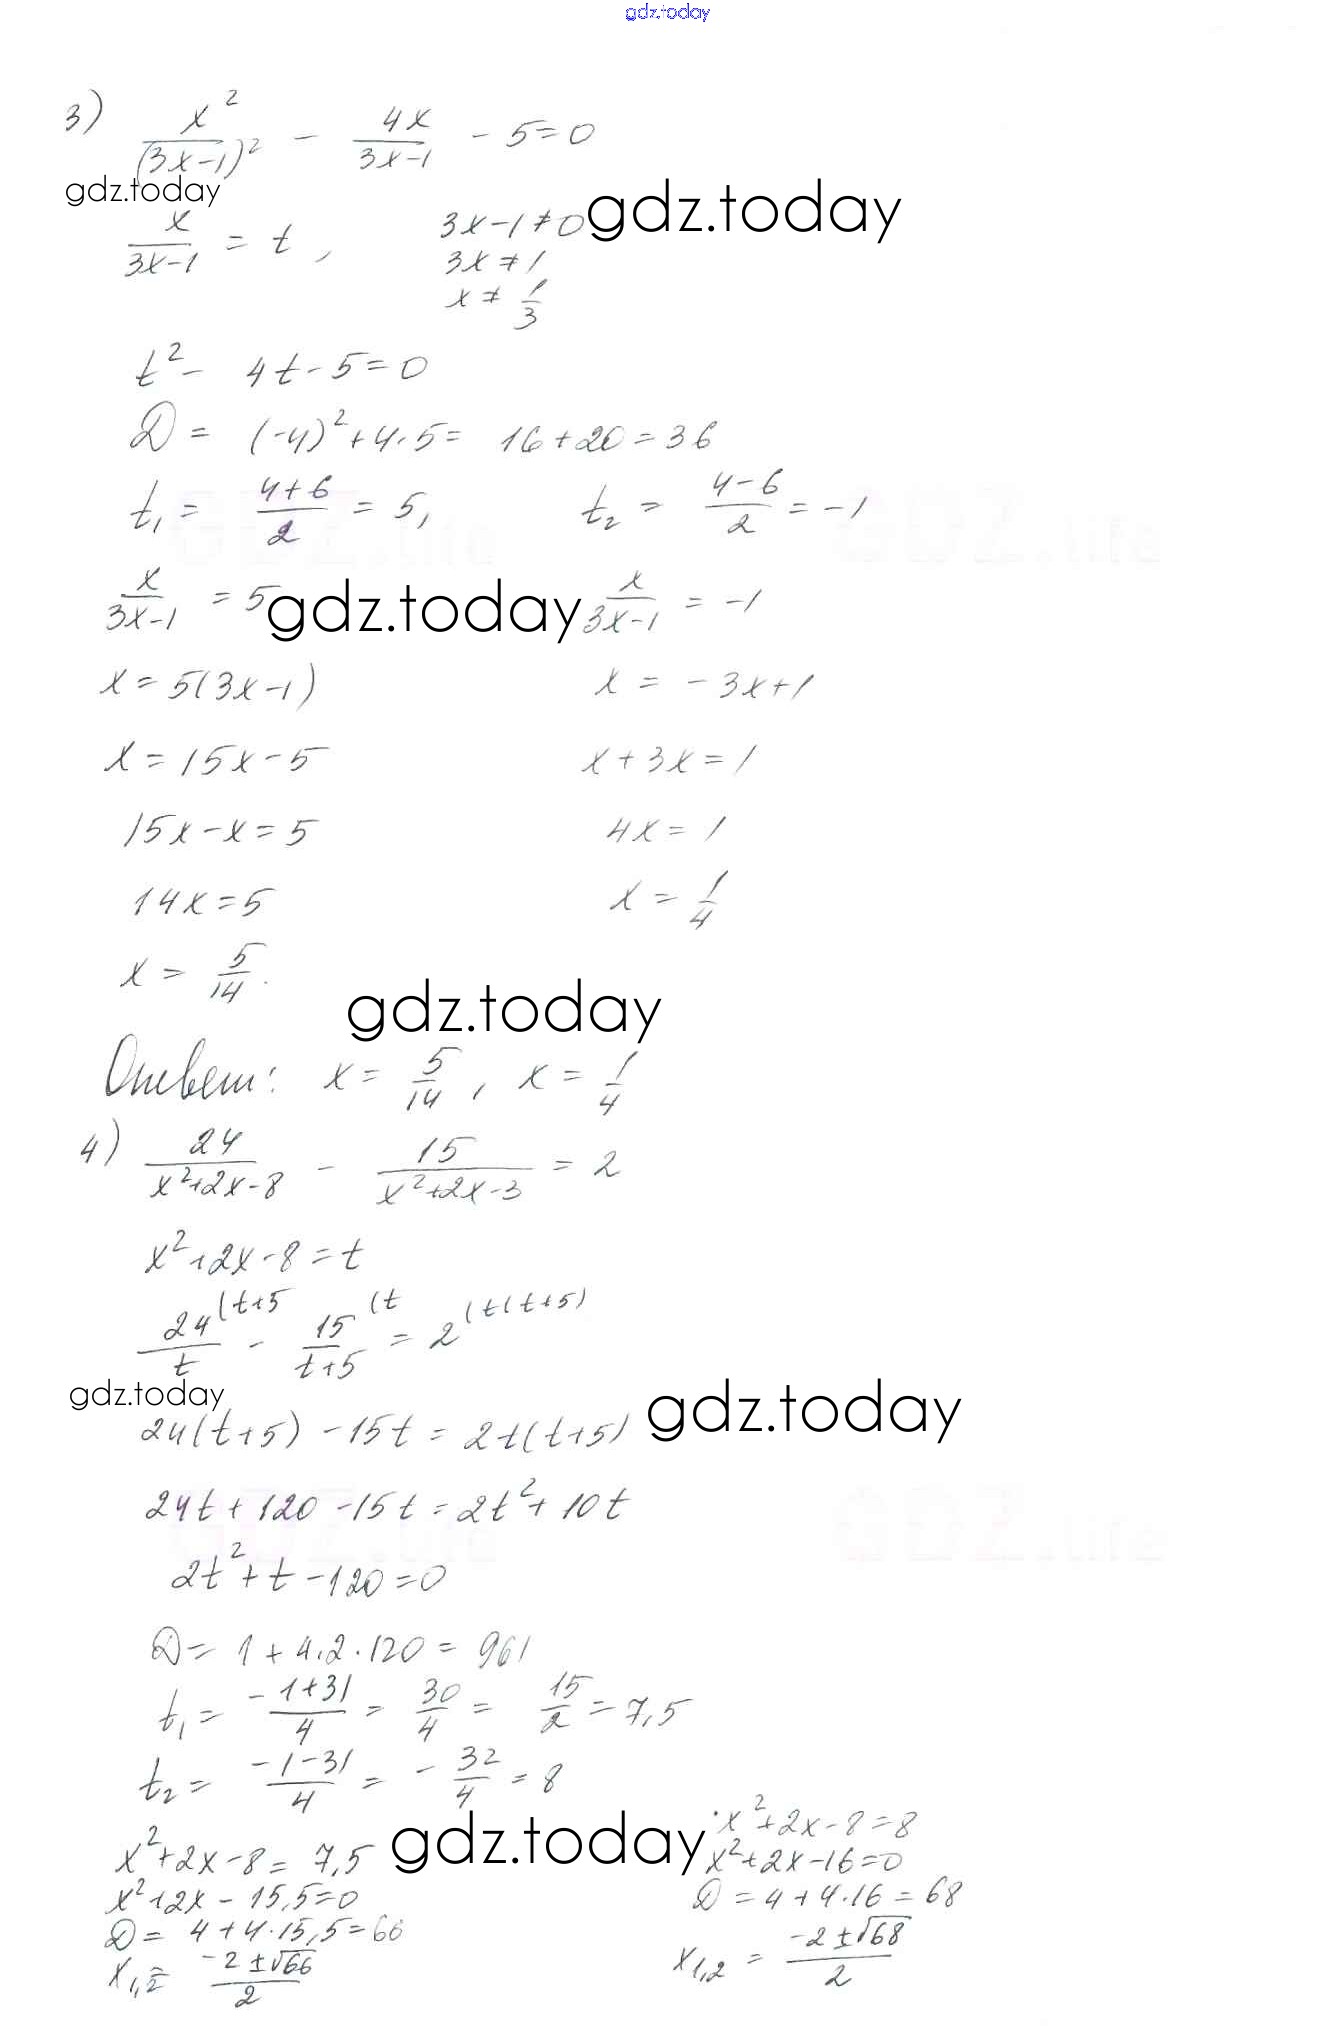 gdz.today
3) x²/(3x-1)² - 4x/(3x-1) - 5=0
gdz.today
x/(3x-1) = t, 3x-1≠0 gdz.today
3x≠1
x≠1/3
t² - 4t-5=0
D = (-4)²+4·5= 16+20=36
t₁ = (4+6)/2 = 5, t₂ = (4-6)/2 = -1
GDZ.life GDZ.life
x/(3x-1) = 5 gdz.today x/(3x-1) = -1
x=5(3x-1) x = -3x+1
x=15x-5 x+3x=1
15x-x=5 4x=1
14x=5 x = 1/4
x = 5/14.
gdz.today
Ответ: x = 5/14, x = 1/4
4) 24/(x²+2x-8) - 15/(x²+2x-3) = 2
x²+2x-8=t
24/t (t+5 - 15/(t+5) (t = 2 (t(t+5)
gdz.today gdz.today
24(t+5) -15t = 2t(t+5)
24t+120-15t=2t²+10t
GDZ.life GDZ.life
2t²+t-120=0
D= 1+4·2·120= 961
t₁ = (-1+31)/4 = 30/4 = 15/2 = 7,5
t₂ = (-1-31)/4 = -32/4 = 8
x²+2x-8= 7,5 gdz.today ·x²+2x-8=8
x²+2x-15,5=0 x²+2x-16=0
D= 4+4·15,5=66 D=4+4·16=68
x₁,₂= (-2±√66)/2 x₁,₂ = (-2±√68)/2